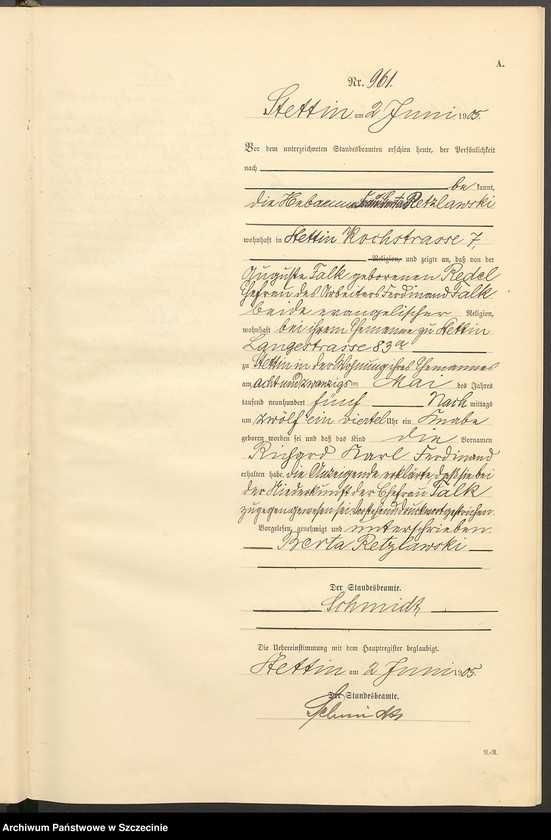 A.
Nr. 961.
Stettin am 2 Juni 1905.
Vor dem unterzeichneten Standesbeamten erschien heute, der Persönlichkeit
nach
be kannt,
die Hebamme Retzlawski
wohnhaft in Stettin Kochstrasse 7,
Religion, und zeigte an, daß von der
Auguste Falk geborenen Redel
Ehefrau des Arbeiters Ferdinand Falk
beide evangelischer Religion,
wohnhaft bei ihrem Ehemanne zu Stettin
Langestrasse 83a
zu Stettin in der Wohnung ihres Ehemannes
am achtundzwanzigsten Mai des Jahres
tausend neunhundert fünf Nach mittags
um zwölf ein viertel Uhr ein Knabe
geboren worden sei und daß das Kind die Vornamen
Richard Karl Ferdinand
erhalten habe. die Anzeigende erklärte daß sie bei
der Niederkunft der Ehefrau Falk
zugegen gewesen sei. Vorstehend Druckwort gestrichen.
Vorgelesen, genehmigt und unterschrieben.
Berta Retzlawski
Der Standesbeamte.
Schmidt
Die Uebereinstimmung mit dem Hauptregister beglaubigt.
Stettin am 2 Juni 1905.
Der Standesbeamte.
Schmidt
R.-R.
Archiwum Państwowe w Szczecinie